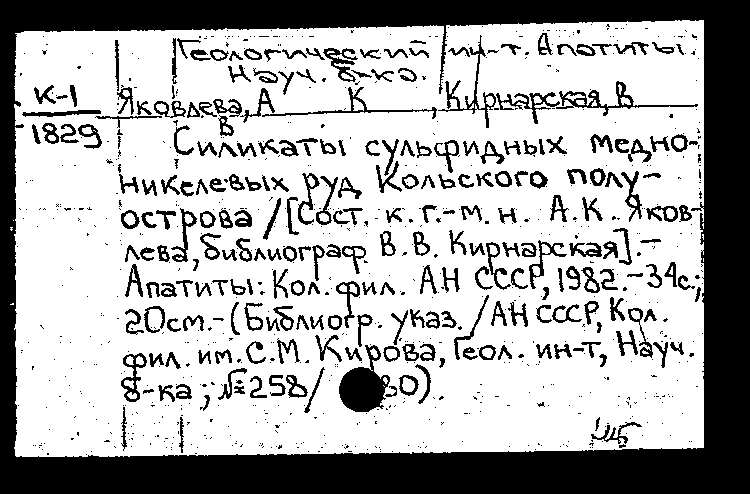 Геологический ин-т. Апатиты.
Науч. б-ка.
К-1
1829
Яковлева, А К , Кирнарская, В
В
Силикаты сульфидных медно-
никелевых руд Кольского полу-
острова / [Сост. к. г.-м. н. А. К. Яков-
лева, библиограф В. В. Кирнарская]. -
Апатиты: Кол. фил. АН СССР, 1982. - 34с.;
20см. - (Библиогр. указ. / АН СССР, Кол.
фил. им. С. М. Кирова, Геол. ин-т, Науч.
б-ка; №258/ 80).